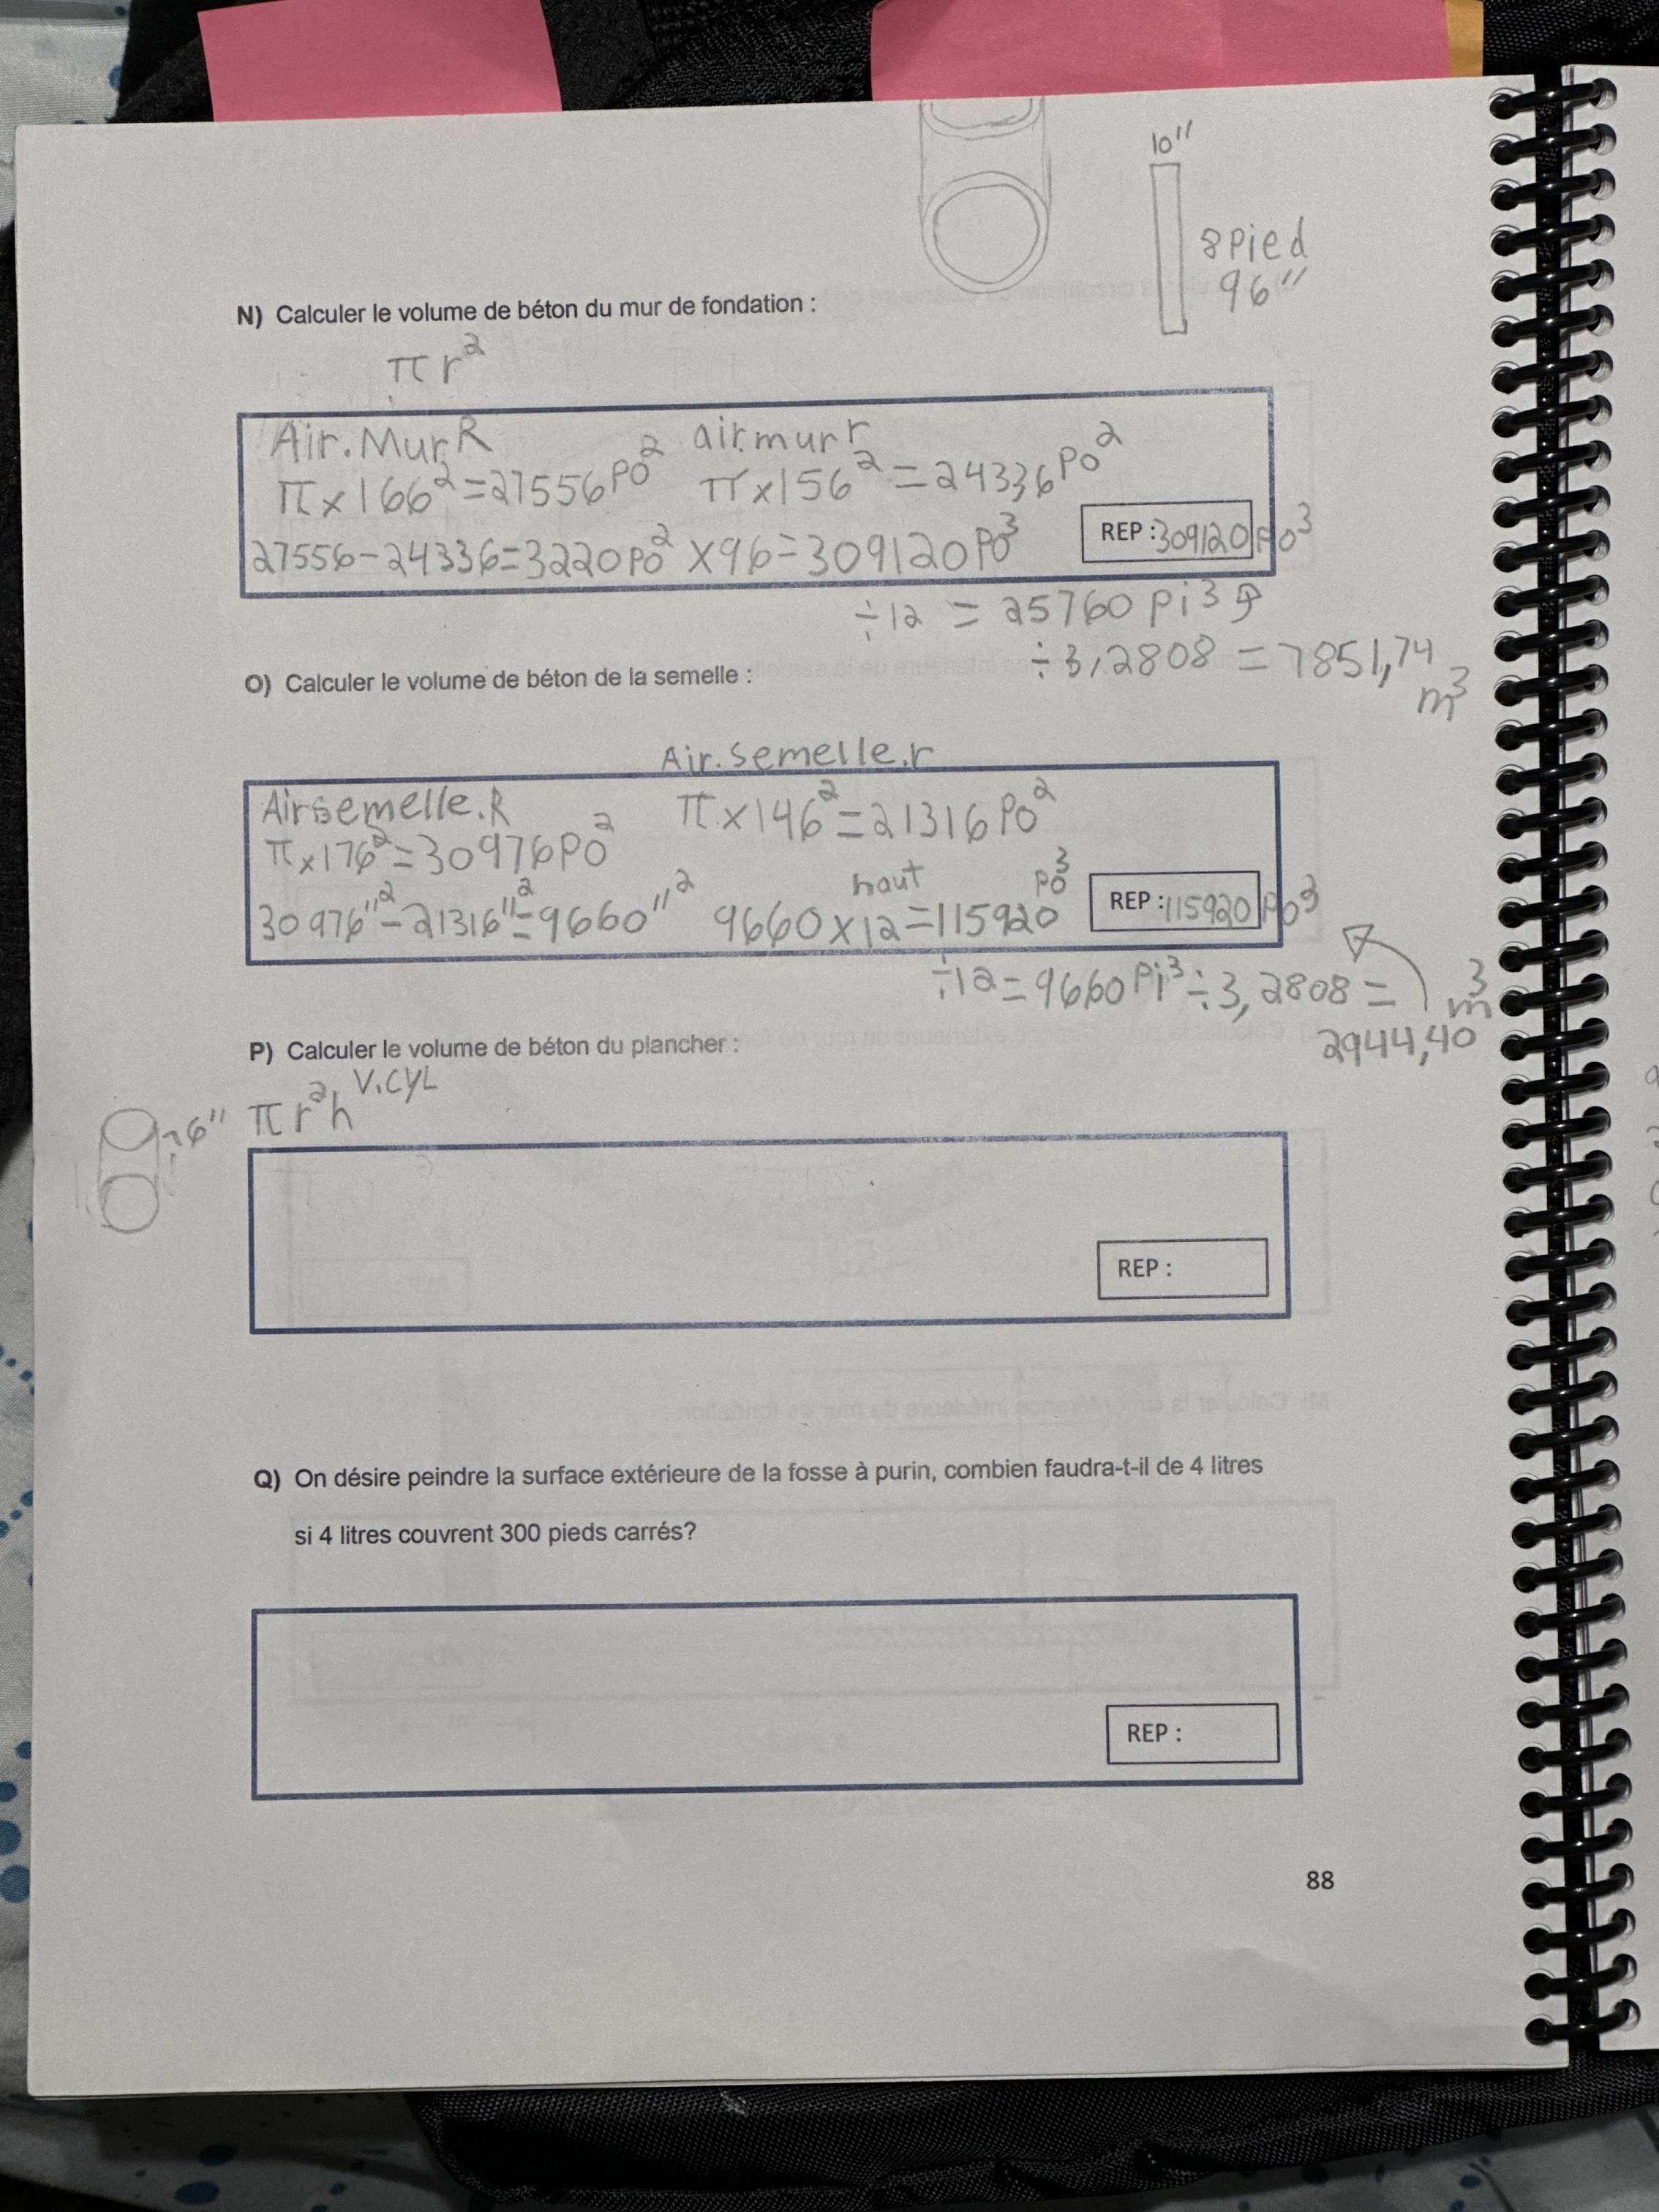 10"
8 pied
96"
N) Calculer le volume de béton du mur de fondation :
πr²
Air.Mur R air.mur r
π x 166² = 27556 po² π x 156² = 24336 po²
27556 - 24336 = 3220 po² x 96 = 309120 po³ REP : 309120 po³
÷ 12 = 25760 pi³
÷ 3,2808 = 7851,74 m³
O) Calculer le volume de béton de la semelle :
Air.semelle.r
Air semelle.R π x 146² = 21316 po²
π x 176² = 30976 po²
haut
30976"² - 21316"² = 9660"² 9660 x 12 = 115920 po³ REP : 115920 po³
÷12 = 9660 pi³ ÷ 3,2808 = m³
2944,40
P) Calculer le volume de béton du plancher :
6" πr²h V.CYL
REP :
Q) On désire peindre la surface extérieure de la fosse à purin, combien faudra-t-il de 4 litres
si 4 litres couvrent 300 pieds carrés?
REP :
88